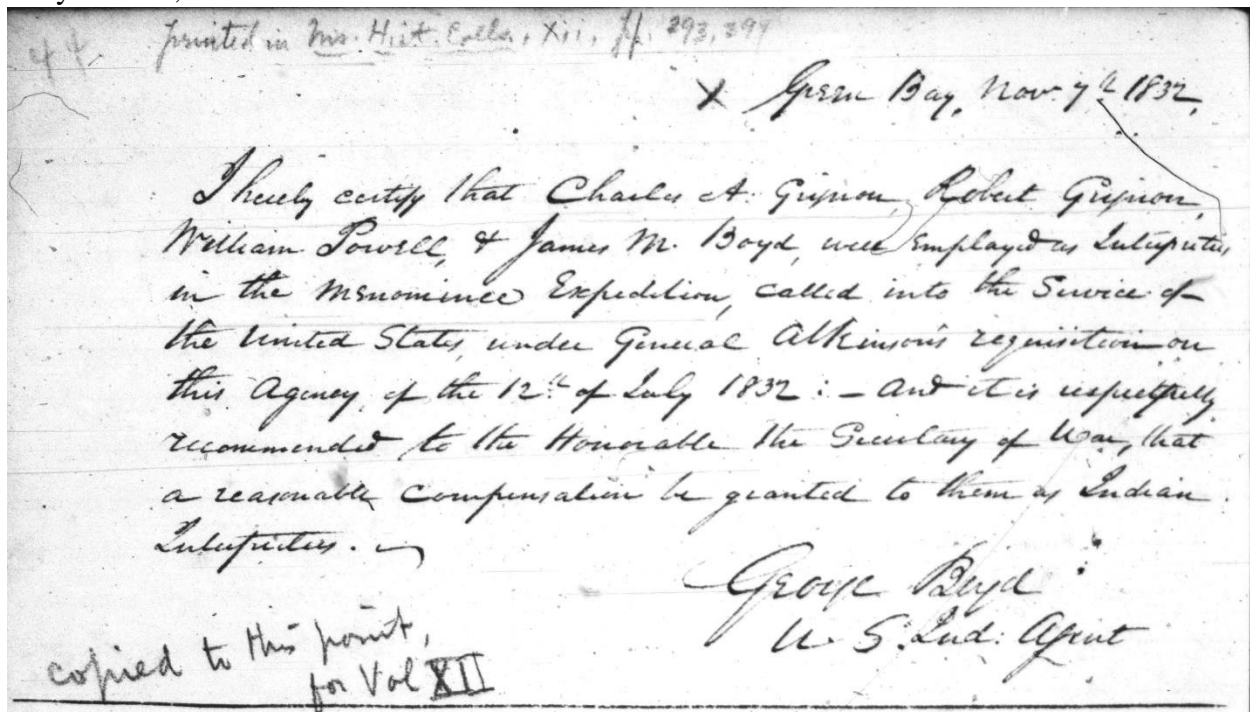 44. printed in Wis. Hist. Colls., xii, pp. 293, 294
X Green Bay, Nov. 7th 1832,
I hereby certify that Charles A. Grignon, Robert Grignon,
William Powell, & James M. Boyd, were employed as Interpreters
in the Menominee Expedition, called into the Service of
the United States, under General Atkinson's requisition on
this Agency, of the 12th of July 1832: – and it is respectfully
recommended to the Honorable the Secretary of War, that
a reasonable compensation be granted to them as Indian
Interpreters.
George Boyd
U. S. Ind: Agent
copied to this point,
for Vol XII